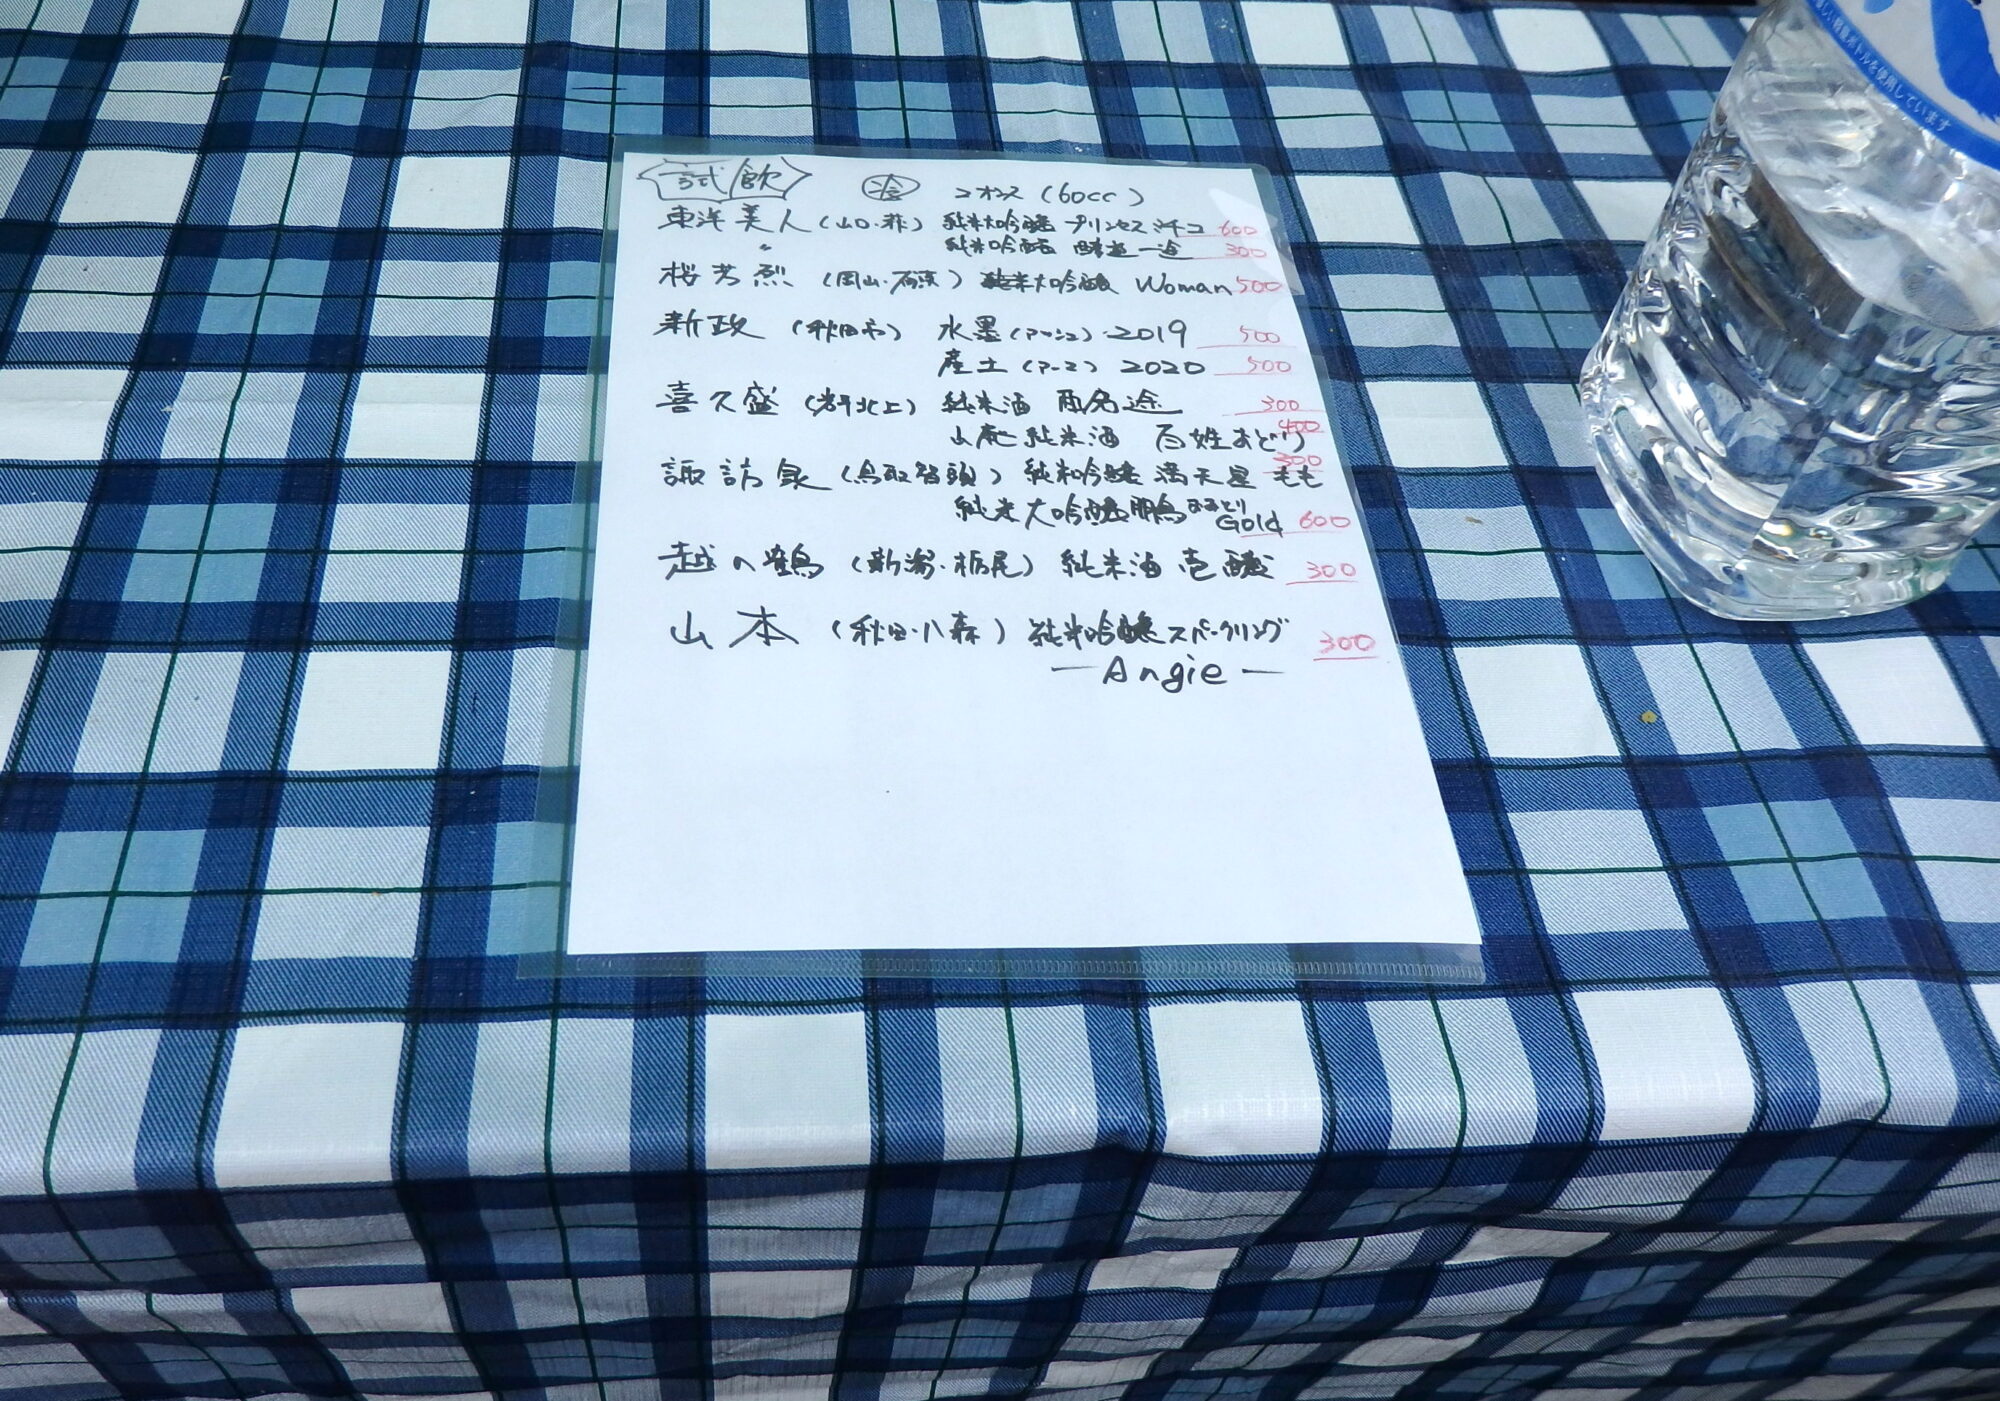 試飲 冷 2オンス (60cc)
東洋美人 (山口・萩) 純米大吟醸 プリンセスミチコ 600
〃 純米吟醸 醇道一途 300
桜芳烈 (岡山・) 純米大吟醸 Woman 500
新政 (秋田市) 水墨 (アッシュ) 2019 500
産土 (アース) 2020 500
喜久盛 (岩手北上) 純米酒 西and途 300
山廃純米酒 百姓おどり 400
諏訪泉 (鳥取智頭) 純米吟醸 満天星 もも 300
純米大吟醸 鵬 おおとり Gold 600
越の鶴 (新潟・栃尾) 純米酒 壱醸 300
山本 (秋田・八森) 純米吟醸 スパークリング 300
—Angie—
ボトルを使用しています